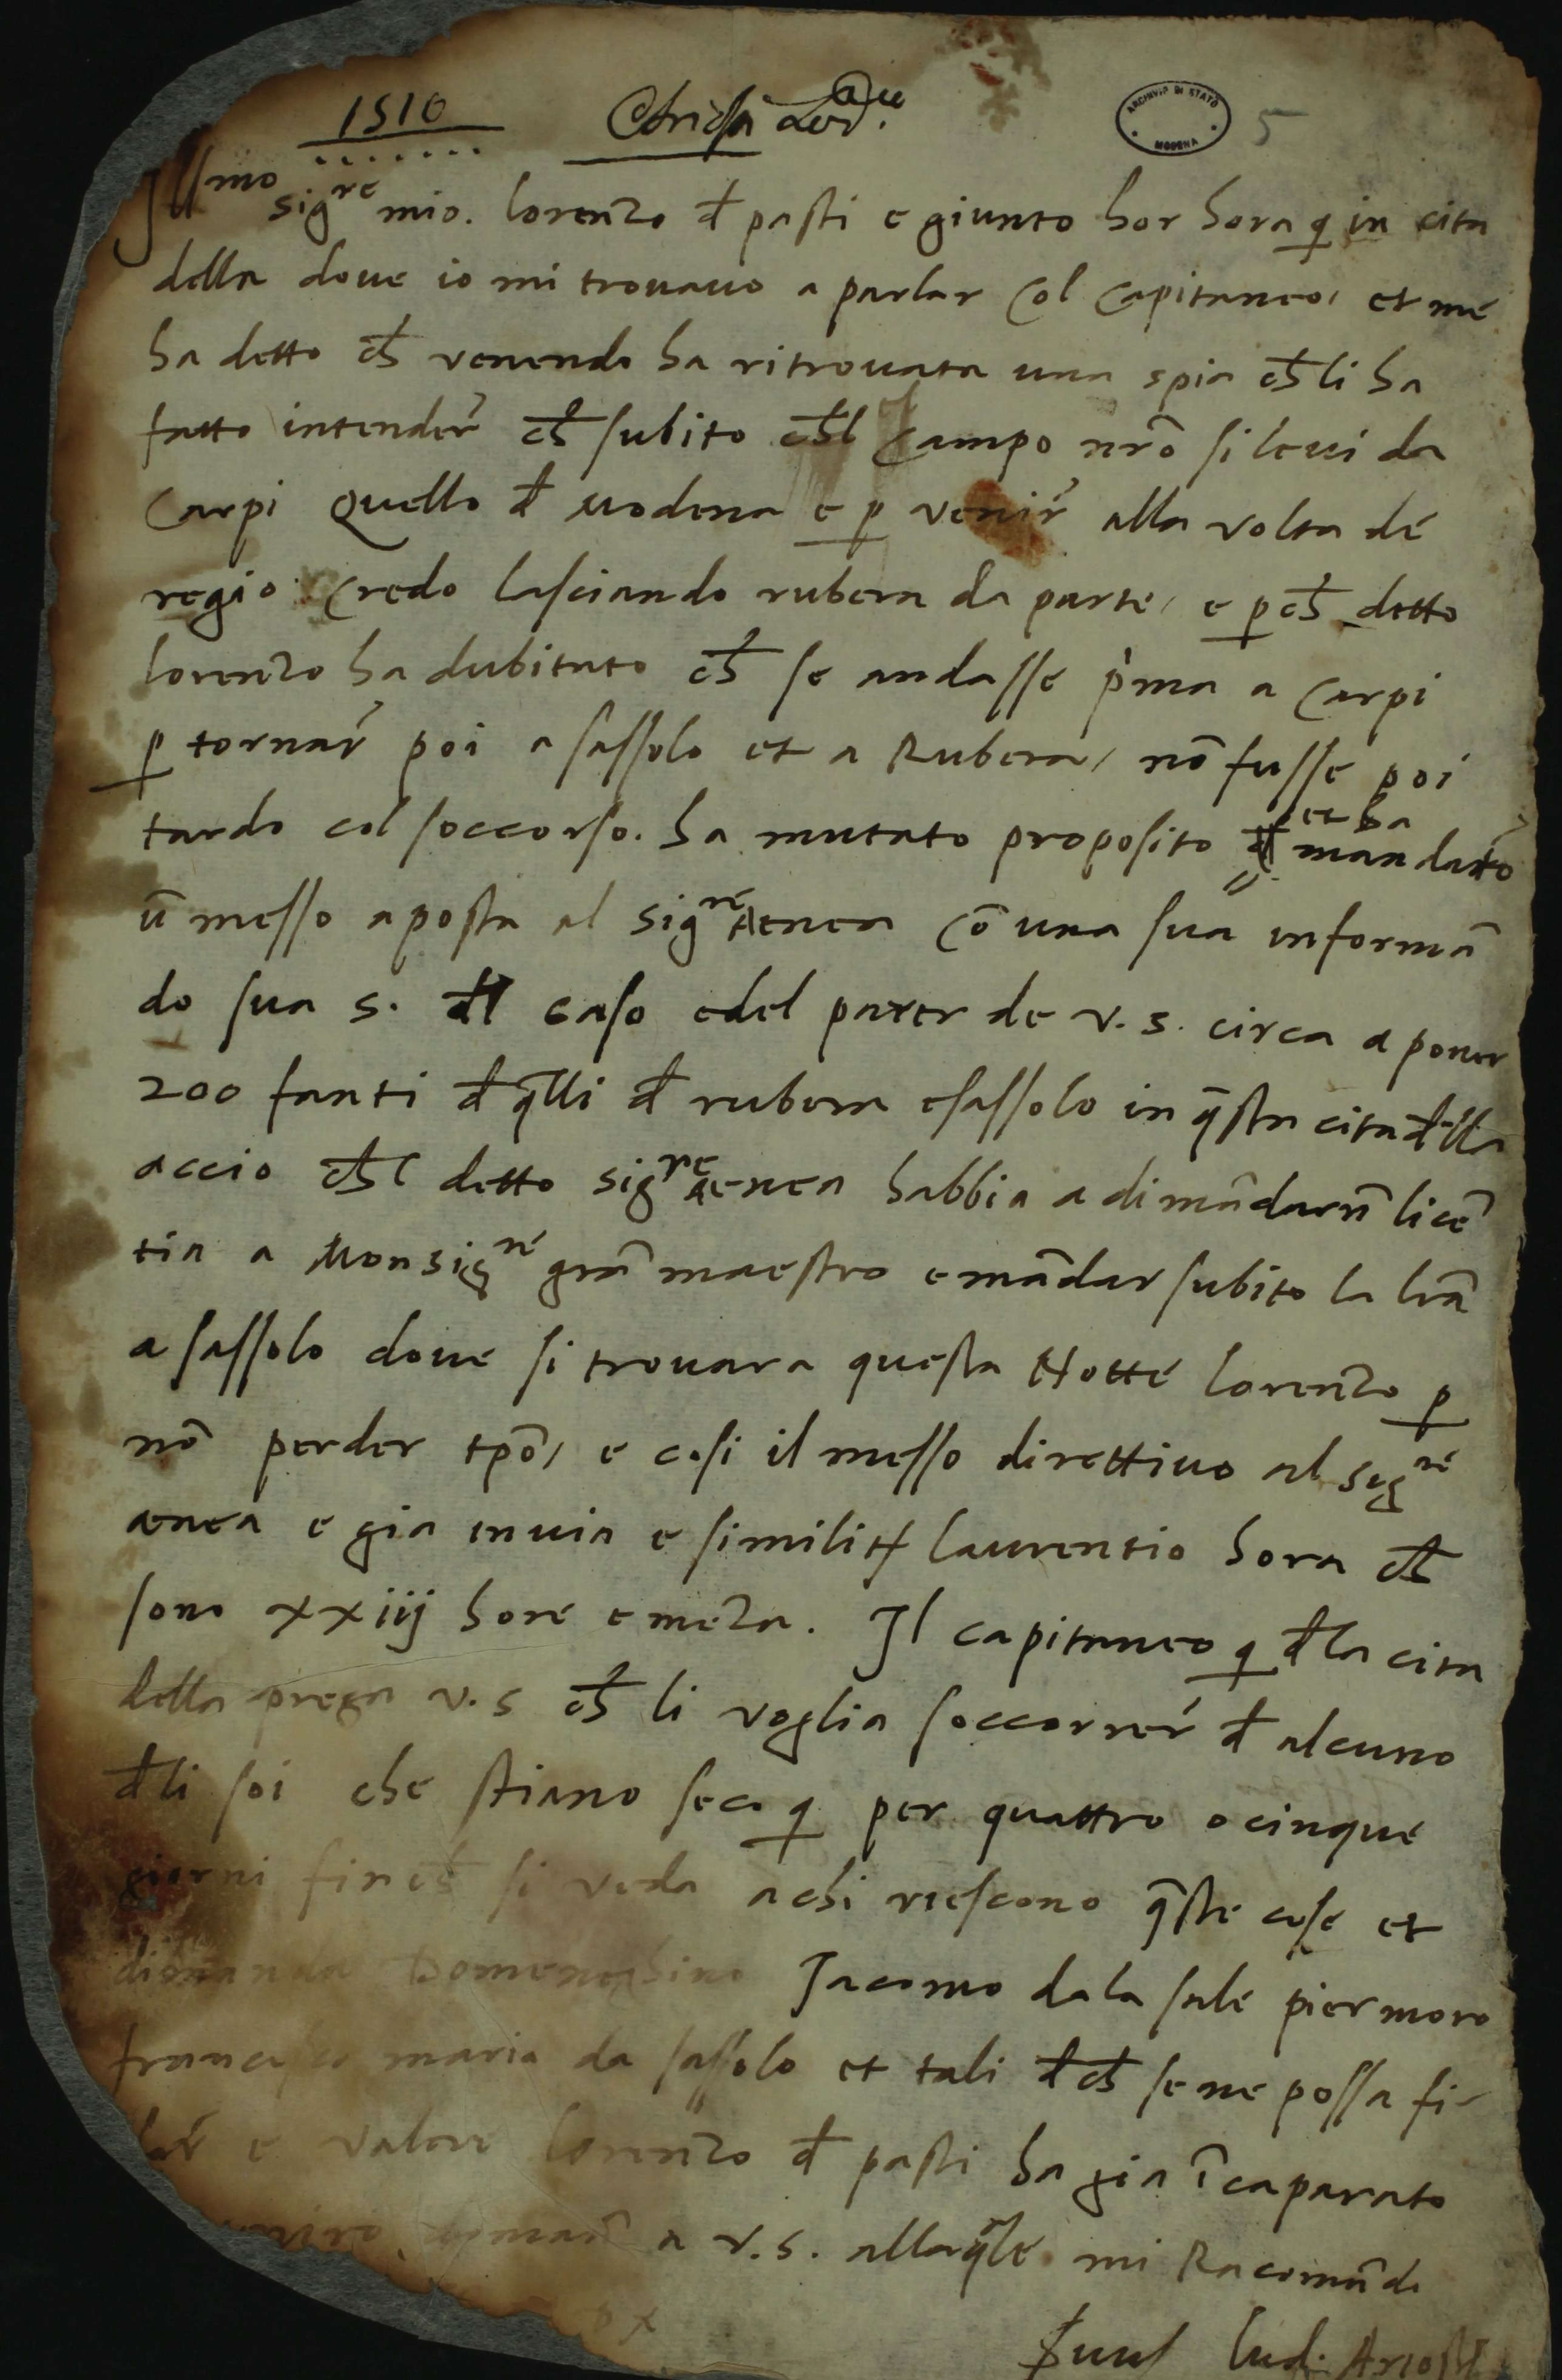 1510
ARCHIVIO DI STATO
MODENA
5
Illmo sigre mio. lorenzo đ pasti e giunto hor hora q in cita
della doue io mi trouauo a parlar col capitaneo, et me
ha detto ch̄ venendo ha ritrouata una spia ch̄ li ha
fatto intender ch̄ subito ch̄l campo nr̄o si leui da
Carpi Quello đ Modena e p venir alla volta de
regio credo lasciando rubera da parte, e p ch̄ detto
lorenzo ha dubitato ch̄ se andasse p'ma a Carpi
p tornar poi a sassolo et a Rubera, nō fusse poi
tardo col soccorso. ha mutato proposito et ha mandato
ū messo a posta al sigre Aenea cō una sua informā
do sua s. đl caso e del parer de v.s. circa a poner
200 fanti đ q̄lli đ rubera e sassolo in q̄sta citađlla
accio ch̄l detto sigre aenea habbia a dimādarn̄ licē
tia a Monsigre grā maestro e mādar subito la lr̄a
a sassolo doue si trouara questa Notte lorenzo p
nō perder tpō, e cosi il messo direttiuo al sigre
aenea e gia in uia e similit laurentio hora ch̄
sono xxiij hore e meza. Il capitaneo q đla cita
della prega v.s ch̄ li voglia soccorrer đ alcuno
đli soi che stiano seco q per quattro o cinque
giorni fin ch̄ si veda a chi riescono q̄ste cose et
dimanda Domenochino Jacomo da la sale pier moro
francesco maria da sassolo et tali đ ch̄ se ne possa fi-
dar e valere lorenzo đ pasti ha gia īcaparato
a v.s. alla q̄le mi Racomādo
Lud. Ariost